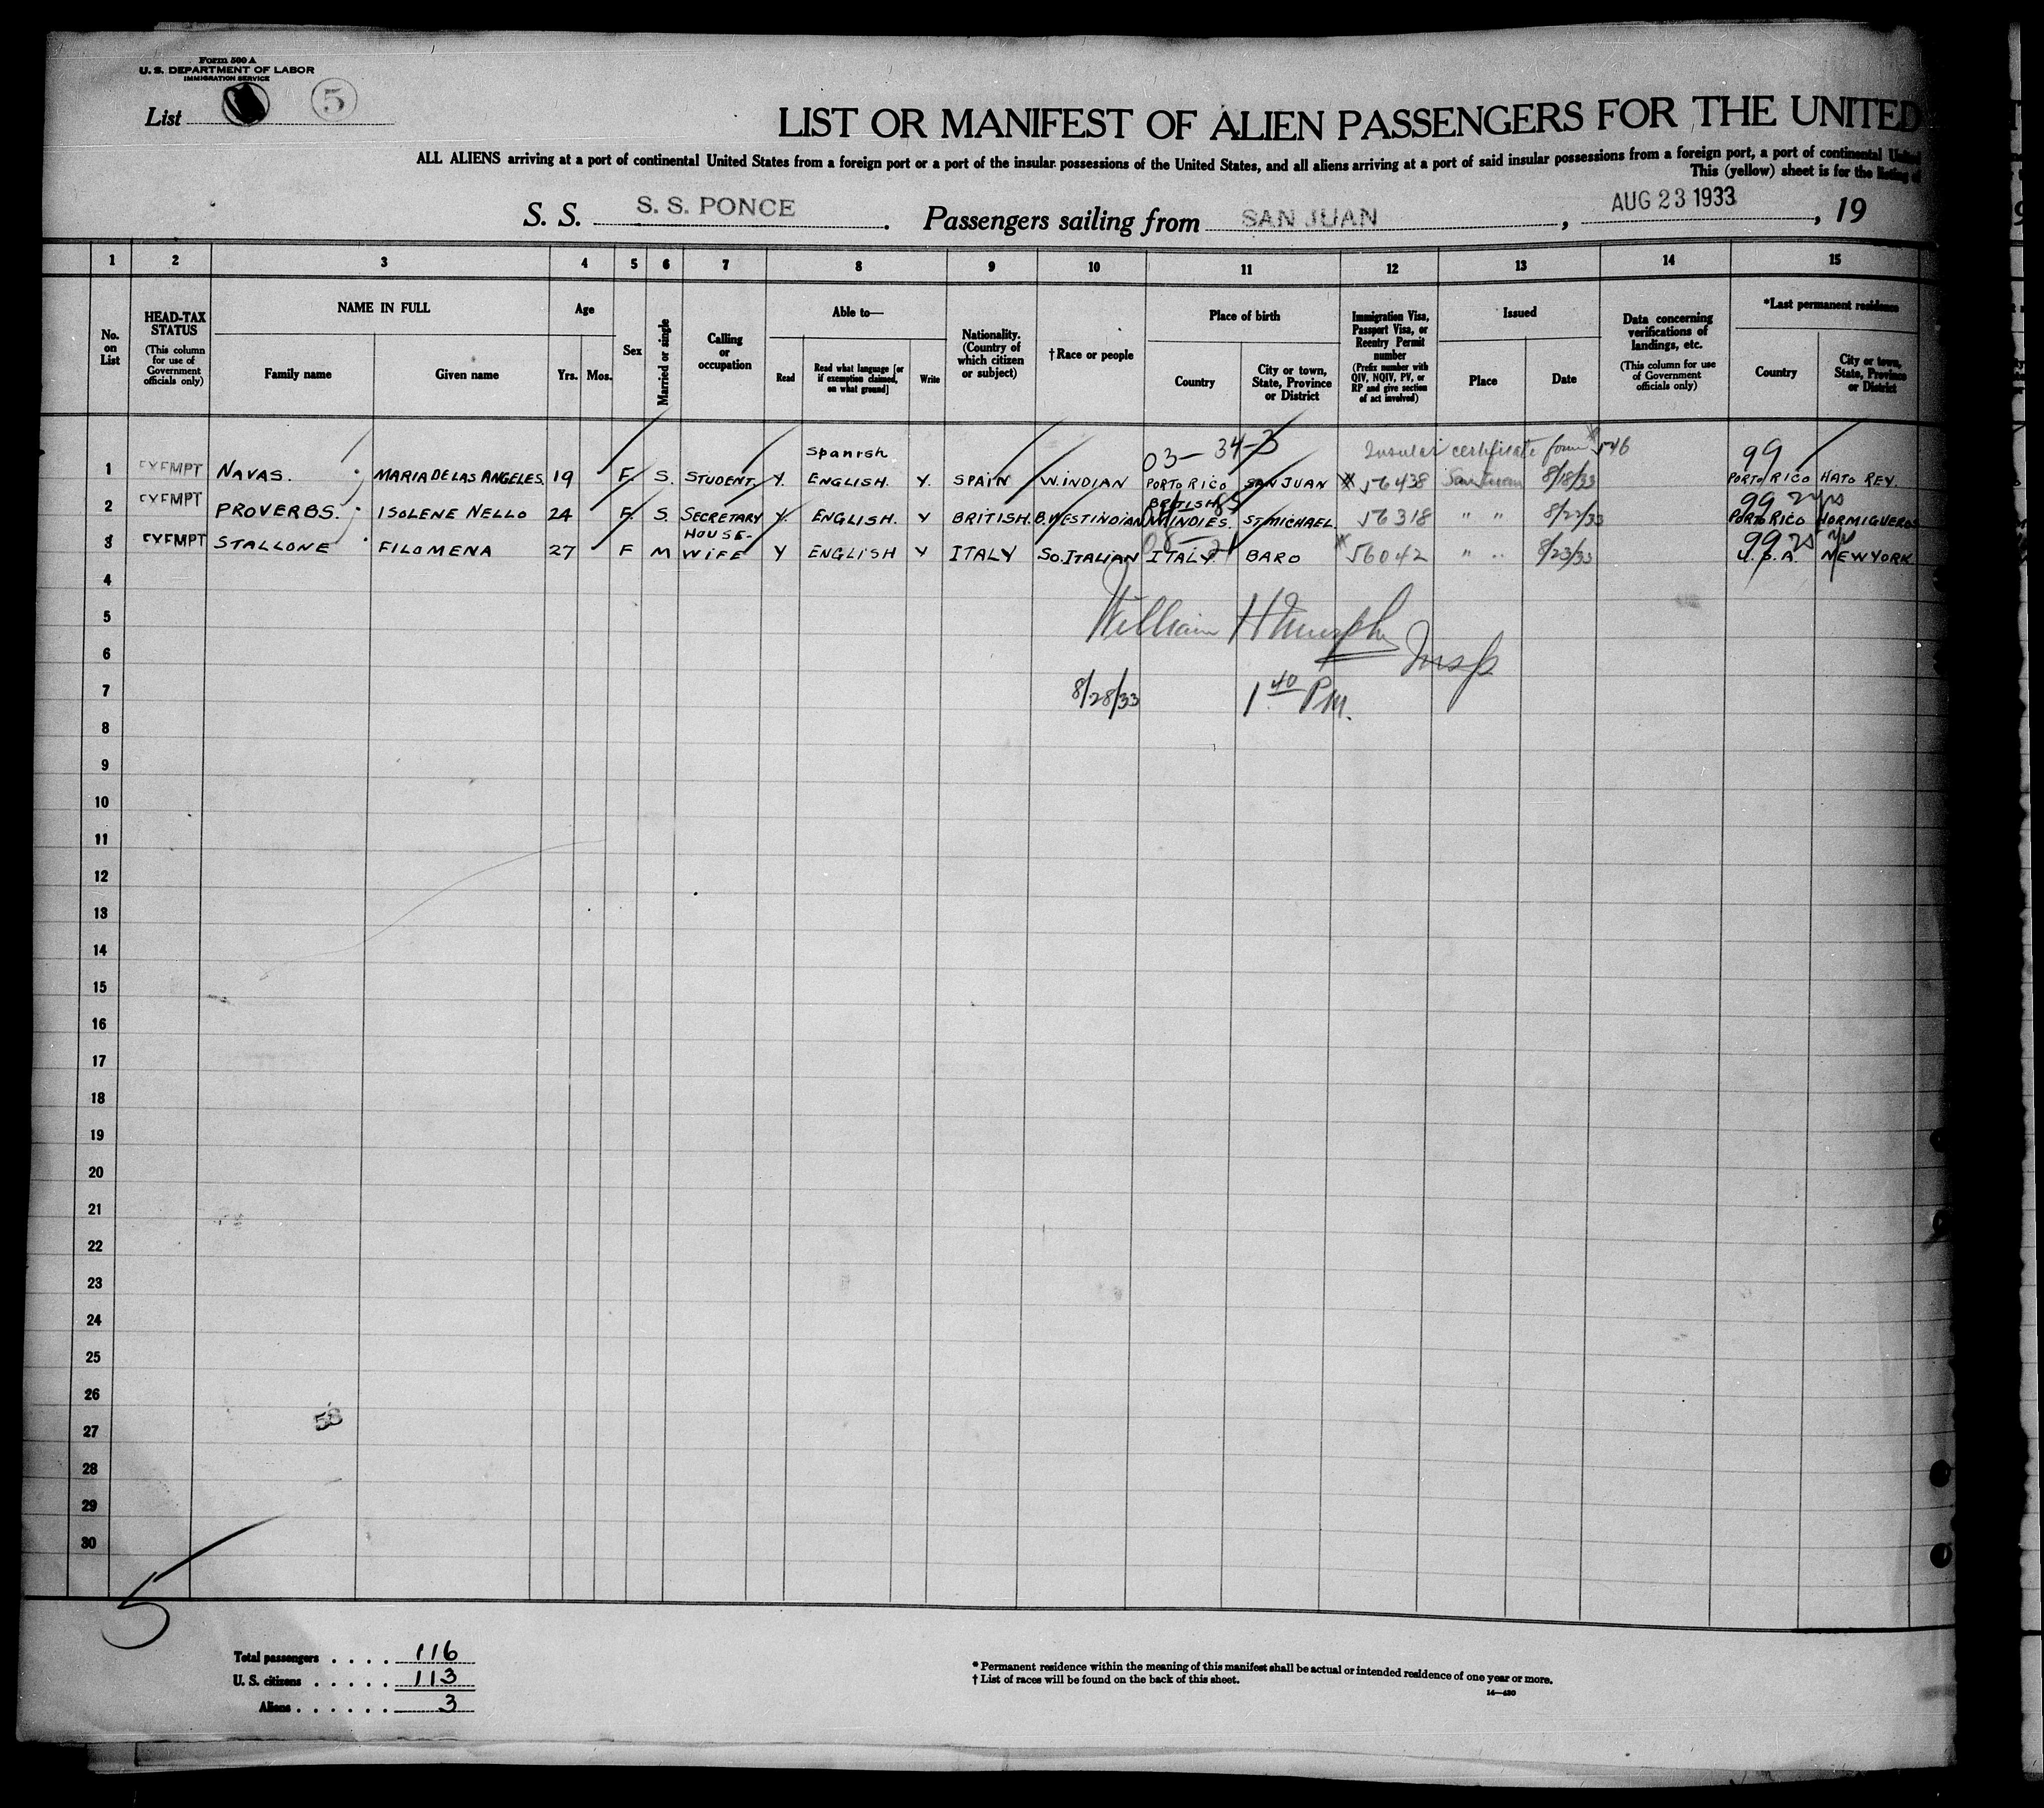 Form 500 A
U. S. DEPARTMENT OF LABOR
IMMIGRATION SERVICE
List 5
LIST OR MANIFEST OF ALIEN PASSENGERS FOR THE UNITED
ALL ALIENS arriving at a port of continental United States from a foreign port or a port of the insular possessions of the United States, and all aliens arriving at a port of said insular possessions from a foreign port, a port of continental United
This (yellow) sheet is for the listing of
S. S. S. S. PONCE . Passengers sailing from SAN JUAN , AUG 23 1933 , 19
1 2 3 4 5 6 7 8 9 10 11 12 13 14 15
No. on List
HEAD-TAX STATUS
(This column for use of Government officials only)
NAME IN FULL
Family name
Given name
Age
Yrs.
Mos.
Sex
Married or single
Calling or occupation
Able to—
Read
Read what language [or if exemption claimed, on what ground]
Write
Nationality. (Country of which citizen or subject)
†Race or people
Place of birth
Country
City or town, State, Province or District
Immigration Visa, Passport Visa, or Reentry Permit number
(Prefix number with QIV, NQIV, PV, or RP and give section of act involved)
Issued
Place
Date
Data concerning verifications of landings, etc.
(This column for use of Government officials only)
*Last permanent residence
Country
City or town, State, Province or District
Spanish 03-34-3 Insular certificate form 546 99
1 EXEMPT NAVAS. MARIA DE LAS ANGELES. 19 F. S. STUDENT. Y. ENGLISH. Y. SPAIN W. INDIAN PORTO RICO SAN JUAN 56438 San Juan 8/18/33 PORTO RICO HATO REY.
BRITISH 99 2 yrs
2 EXEMPT PROVERBS. ISOLENE NELLO 24 F. S. SECRETARY Y. ENGLISH. Y BRITISH. B. WEST INDIAN W. INDIES. ST MICHAEL. 56318 " " 8/22/33 PORTO RICO HORMIGUEROS
HOUSE- 99
3 EXEMPT STALLONE FILOMENA 27 F M WIFE Y ENGLISH Y ITALY SO. ITALIAN ITALY BARO 56042 " " 8/23/33 U. S. A. NEW YORK
4
5 William H Murphy
6 Insp
7 8/28/33 1 40 P.M.
8
9
10
11
12
13
14
15
16
17
18
19
20
21
22
23
24
25
26
58
27
28
29
30
5
Total passengers . . . . 116
U. S. citizens . . . . . 113
Aliens . . . . . . 3
* Permanent residence within the meaning of this manifest shall be actual or intended residence of one year or more.
† List of races will be found on the back of this sheet.
14—430